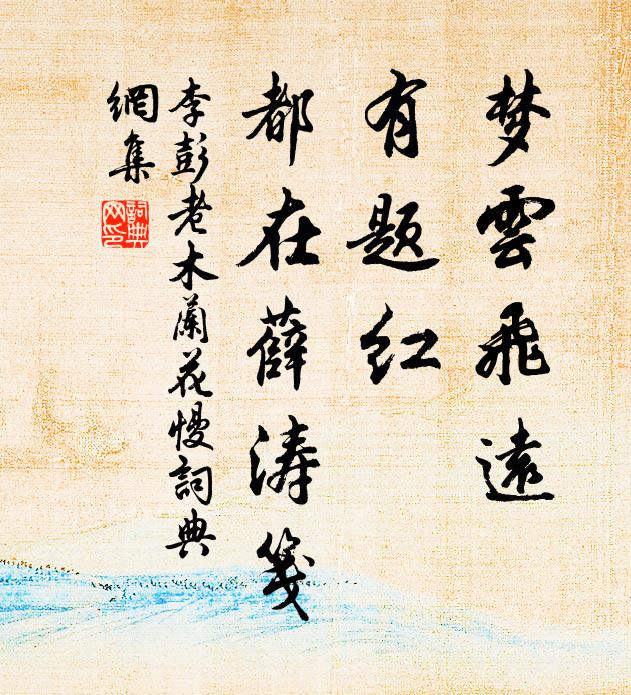 梦雲飛遠
有题红
都在薛涛箋
李彭老木蘭花慢詞典
網集
詞典网印